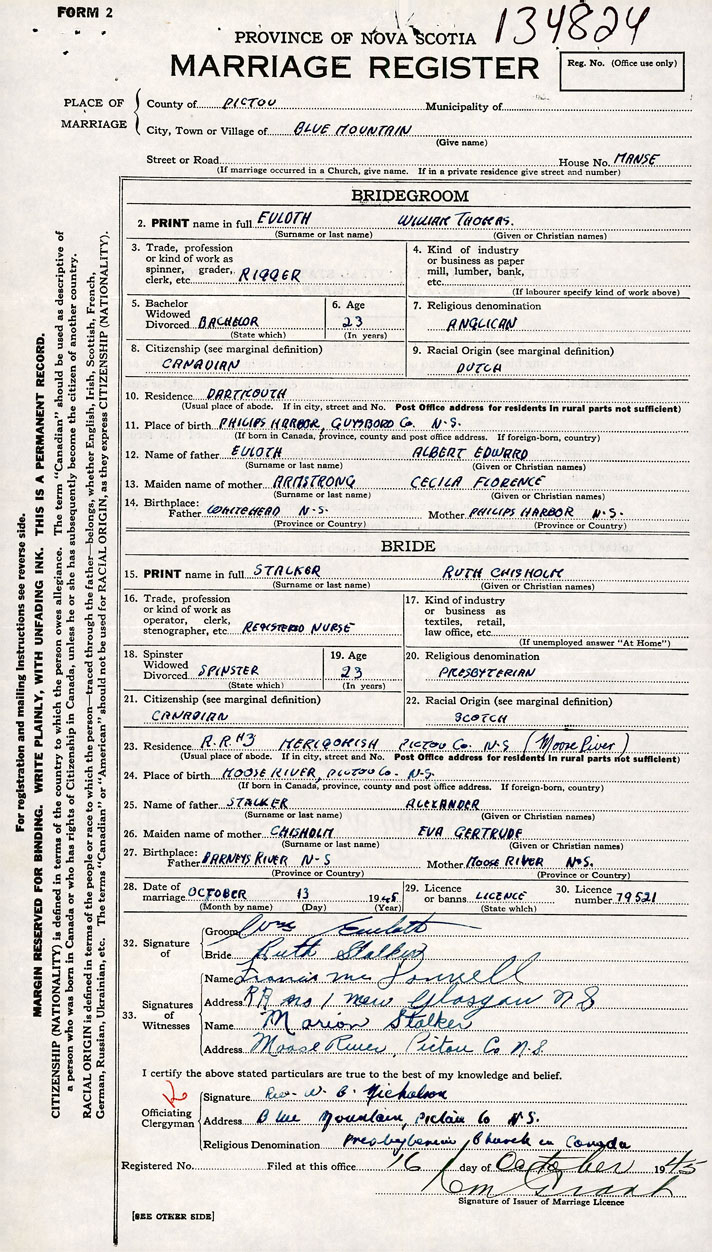 FORM 2
134824
PROVINCE OF NOVA SCOTIA
MARRIAGE REGISTER
Reg. No. (Office use only)
PLACE OF MARRIAGE
County of PICTOU Municipality of
City, Town or Village of BLUE MOUNTAIN
(Give name)
Street or Road House No. MANSE
(If marriage occurred in a Church, give name. If in a private residence give street and number)
BRIDEGROOM
2. PRINT name in full EULOTH WILLIAM THOMAS.
(Surname or last name) (Given or Christian names)
3. Trade, profession or kind of work as spinner, grader, clerk, etc. RIGGER
4. Kind of industry or business as paper mill, lumber, bank, etc.
(If labourer specify kind of work above)
5. Bachelor Widowed Divorced BACHELOR
(State which)
6. Age 23
(In years)
7. Religious denomination
ANGLICAN
8. Citizenship (see marginal definition)
CANADIAN
9. Racial Origin (see marginal definition)
DUTCH
10. Residence DARTMOUTH
(Usual place of abode. If in city, street and No. Post Office address for residents in rural parts not sufficient)
11. Place of birth PHILIPS HARBOR, GUYSBORO Co. N.S.
(If born in Canada, province, county and post office address. If foreign-born, country)
12. Name of father EULOTH ALBERT EDWARD
(Surname or last name) (Given or Christian names)
13. Maiden name of mother ARMSTRONG CECILA FLORENCE
(Surname or last name) (Given or Christian names)
14. Birthplace:
Father WHITEHEAD N.S. Mother PHILIPS HARBOR N.S.
(Province or Country) (Province or Country)
BRIDE
15. PRINT name in full STALKER RUTH CHISHOLM
(Surname or last name) (Given or Christian names)
16. Trade, profession or kind of work as operator, clerk, stenographer, etc. REGISTERED NURSE
17. Kind of industry or business as textiles, retail, law office, etc.
(If unemployed answer "At Home")
18. Spinster Widowed Divorced SPINSTER
(State which)
19. Age 23
(In years)
20. Religious denomination
PRESBYTERIAN
21. Citizenship (see marginal definition)
CANADIAN
22. Racial Origin (see marginal definition)
SCOTCH
23. Residence R.R.#3 MERIGOMISH PICTOU Co. N.S (Moose River)
(Usual place of abode. If in city, street and No. Post Office address for residents in rural parts not sufficient)
24. Place of birth MOOSE RIVER, PICTOU Co. N.S.
(If born in Canada, province, county and post office address. If foreign-born, country)
25. Name of father STALKER ALEXANDER
(Surname or last name) (Given or Christian names)
26. Maiden name of mother CHISHOLM EVA GERTRUDE
(Surname or last name) (Given or Christian names)
27. Birthplace:
Father BARNEYS RIVER N-S Mother MOOSE RIVER N.S.
(Province or Country) (Province or Country)
28. Date of marriage OCTOBER 13 1945
(Month by name) (Day) (Year)
29. Licence or banns LICENCE
(State which)
30. Licence number 79521
32. Signature of
Groom Wm Euloth
Bride Ruth Stalker
33. Signatures of Witnesses
Name Francis
Address RR no 1 New Glasgow N S
Name Marion Stalker
Address Moose River, Pictou Co N.S.
I certify the above stated particulars are true to the best of my knowledge and belief.
Officiating Clergyman
Signature Rev. W. G. Nicholson
Address Blue Mountain, Pictou Co N.S.
Religious Denomination Presbyterian Church in Canada
Registered No. Filed at this office 16 day of October 1945
Signature of Issuer of Marriage Licence
[SEE OTHER SIDE]
For registration and mailing instructions see reverse side.
MARGIN RESERVED FOR BINDING. WRITE PLAINLY, WITH UNFADING INK. THIS IS A PERMANENT RECORD.
CITIZENSHIP (NATIONALITY) is defined in terms of the country to which the person owes allegiance. The term "Canadian" should be used as descriptive of
a person who was born in Canada or who has rights of Citizenship in Canada, unless he or she has subsequently become the citizen of another country.
RACIAL ORIGIN is defined in terms of the people or race to which the person—traced through the father—belongs, whether English, Irish, Scottish, French,
German, Russian, Ukrainian, etc. The terms "Canadian" or "American" should not be used for RACIAL ORIGIN, as they express CITIZENSHIP (NATIONALITY).